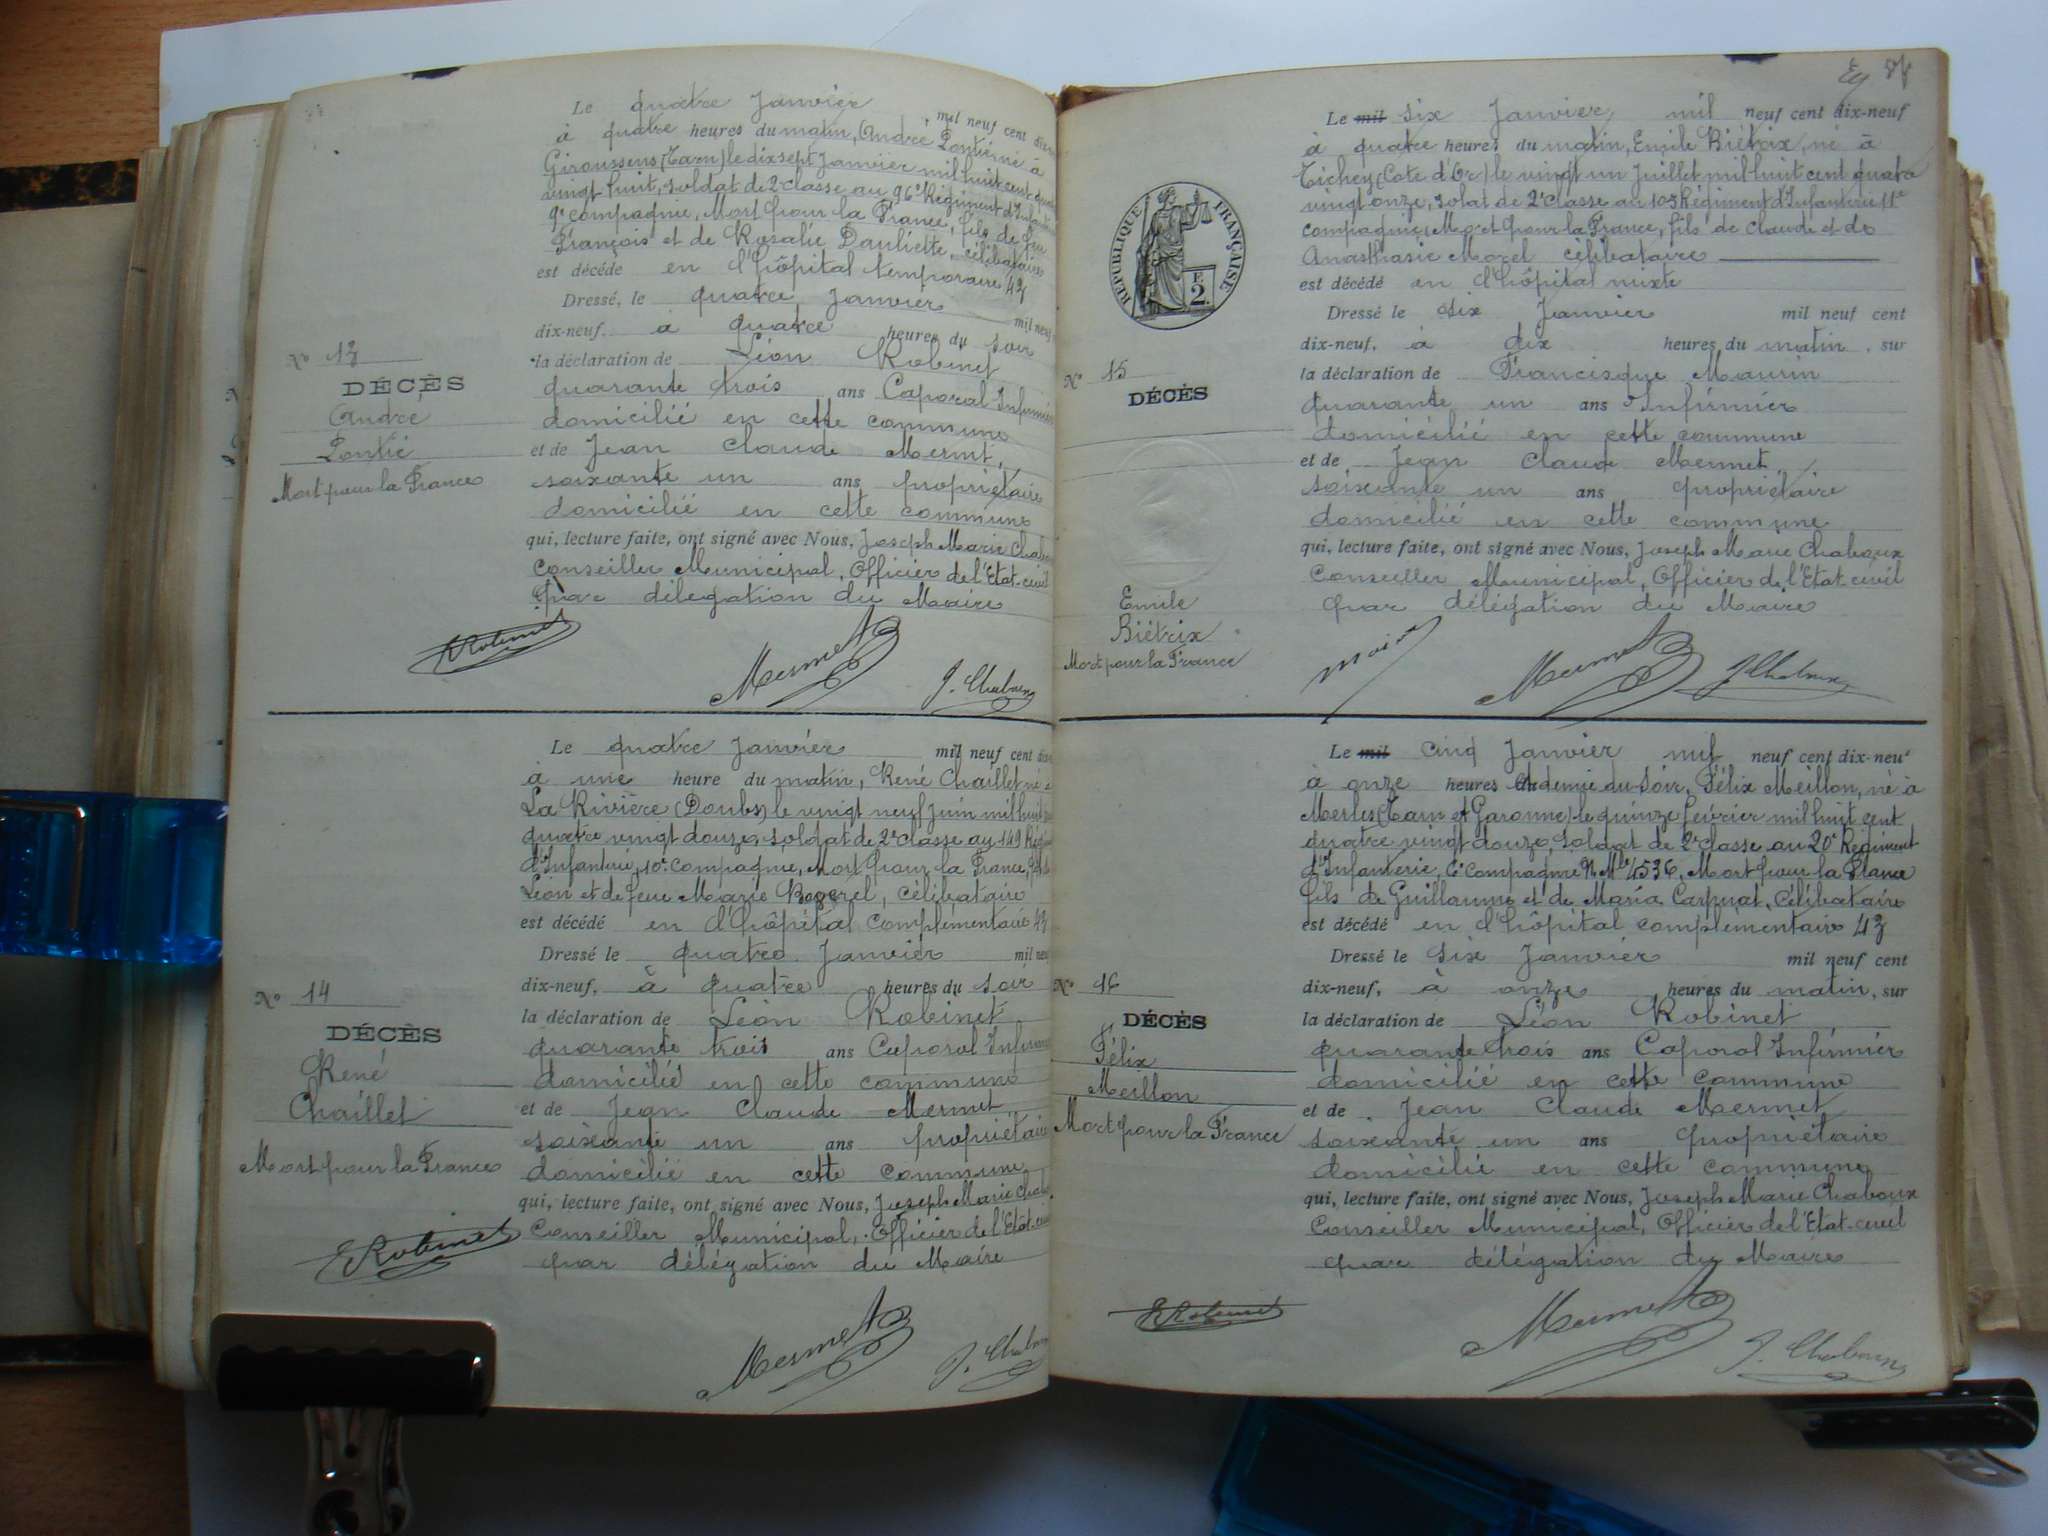 Le quatre Janvier mil neuf cent
à quatre heures du matin, André Pontié né à
Giroussens (Tarn) le dix sept Janvier mil huit cent
vingt huit, soldat de 2e classe au 96e Régiment
9e compagnie, Mort pour la France, fils de feu
François et de Rosalie Dauliette, célibataire
est décédé en l'hôpital temporaire 43
Dressé, le quatre Janvier mil neuf
dix-neuf, à quatre heures du soir
Nº 13
la déclaration de Léon Robinet
DÉCÈS
quarante trois ans Caporal Infirmier
André
domicilié en cette commune
Pontié
et de Jean Claude Mermet,
Mort pour la France
soixante un ans propriétaire
domicilié en cette commune
qui, lecture faite, ont signé avec Nous, Joseph Marie
Conseiller Municipal, Officier de l'Etat-civil
par délégation du Maire
Robinet
Mermet
J. Chaboux
Le quatre Janvier mil neuf cent
à une heure du matin, René Chaillet né à
La Rivière (Doubs) le vingt neuf Juin mil huit
quatre vingt douze, soldat de 2e classe au 149
d'Infanterie, 10e compagnie, Mort pour la France,
Léon et de feue Marie célibataire
est décédé en l'hôpital complémentaire 43
Dressé le quatre Janvier mil neuf
Nº 14
dix-neuf, à quatre heures du soir
DÉCÈS
la déclaration de Léon Robinet
René
quarante trois ans Caporal Infirmier
Chaillet
domicilié en cette commune
et de Jean Claude Mermet
Mort pour la France
soixante un ans propriétaire
domicilié en cette commune
qui, lecture faite, ont signé avec Nous, Joseph Marie
Conseiller Municipal, Officier de l'Etat-civil
par délégation du Maire
Robinet
Mermet
J. Chaboux
Le mil six Janvier, mil neuf cent dix-neuf
à quatre heures du matin, Emile Biétrix, né à
Tichey (Cote d'Or) le vingt un Juillet mil huit cent quatre
vingt onze, solat de 2e classe au 103 Régiment d'Infanterie 11e
compagnie, Mort pour la France, fils de Claude et de
Anasthasie Morel célibataire
est décédé en l'hôpital mixte
RÉPUBLIQUE FRANÇAISE
F.
2.
Dressé le six Janvier mil neuf cent
dix-neuf, à dix heures du matin, sur
Nº 15
la déclaration de Francisque Maurin
DÉCÈS
quarante un ans Infirmier
domicilié en cette commune
et de Jean Claude Mermet
soixante un ans propriétaire
domicilié en cette commune
qui, lecture faite, ont signé avec Nous, Joseph Marie Chaboux
Conseiller Municipal, Officier de l'Etat civil
Emile
par délégation du Maire
Biétrix
Mort pour la France
Mermet
J Chaboux
Le mil cinq Janvier mil neuf cent dix-neuf
à onze heures et demie du soir, Félix Meillon, né à
Merles (Tarn et Garonne) le quinze Février mil huit cent
quatre vingt douze, soldat de 2e classe au 20e Régiment
d'Infanterie, 6e compagnie N. Mle 4536, Mort pour la France
fils de Guillaume et de Maria Carpuat, célibataire
est décédé en l'hôpital complémentaire 43
Dressé le six Janvier mil neuf cent
Nº 16
dix-neuf, à onze heures du matin, sur
DÉCÈS
la déclaration de Léon Robinet
Félix
quarante trois ans Caporal Infirmier
Meillon
domicilié en cette commune
Mort pour la France
et de Jean Claude Mermet
soixante un ans propriétaire
domicilié en cette commune
qui, lecture faite, ont signé avec Nous, Joseph Marie Chaboux
Conseiller Municipal, Officier de l'Etat-civil
par délégation du Maire
Robinet
Mermet
J. Chaboux